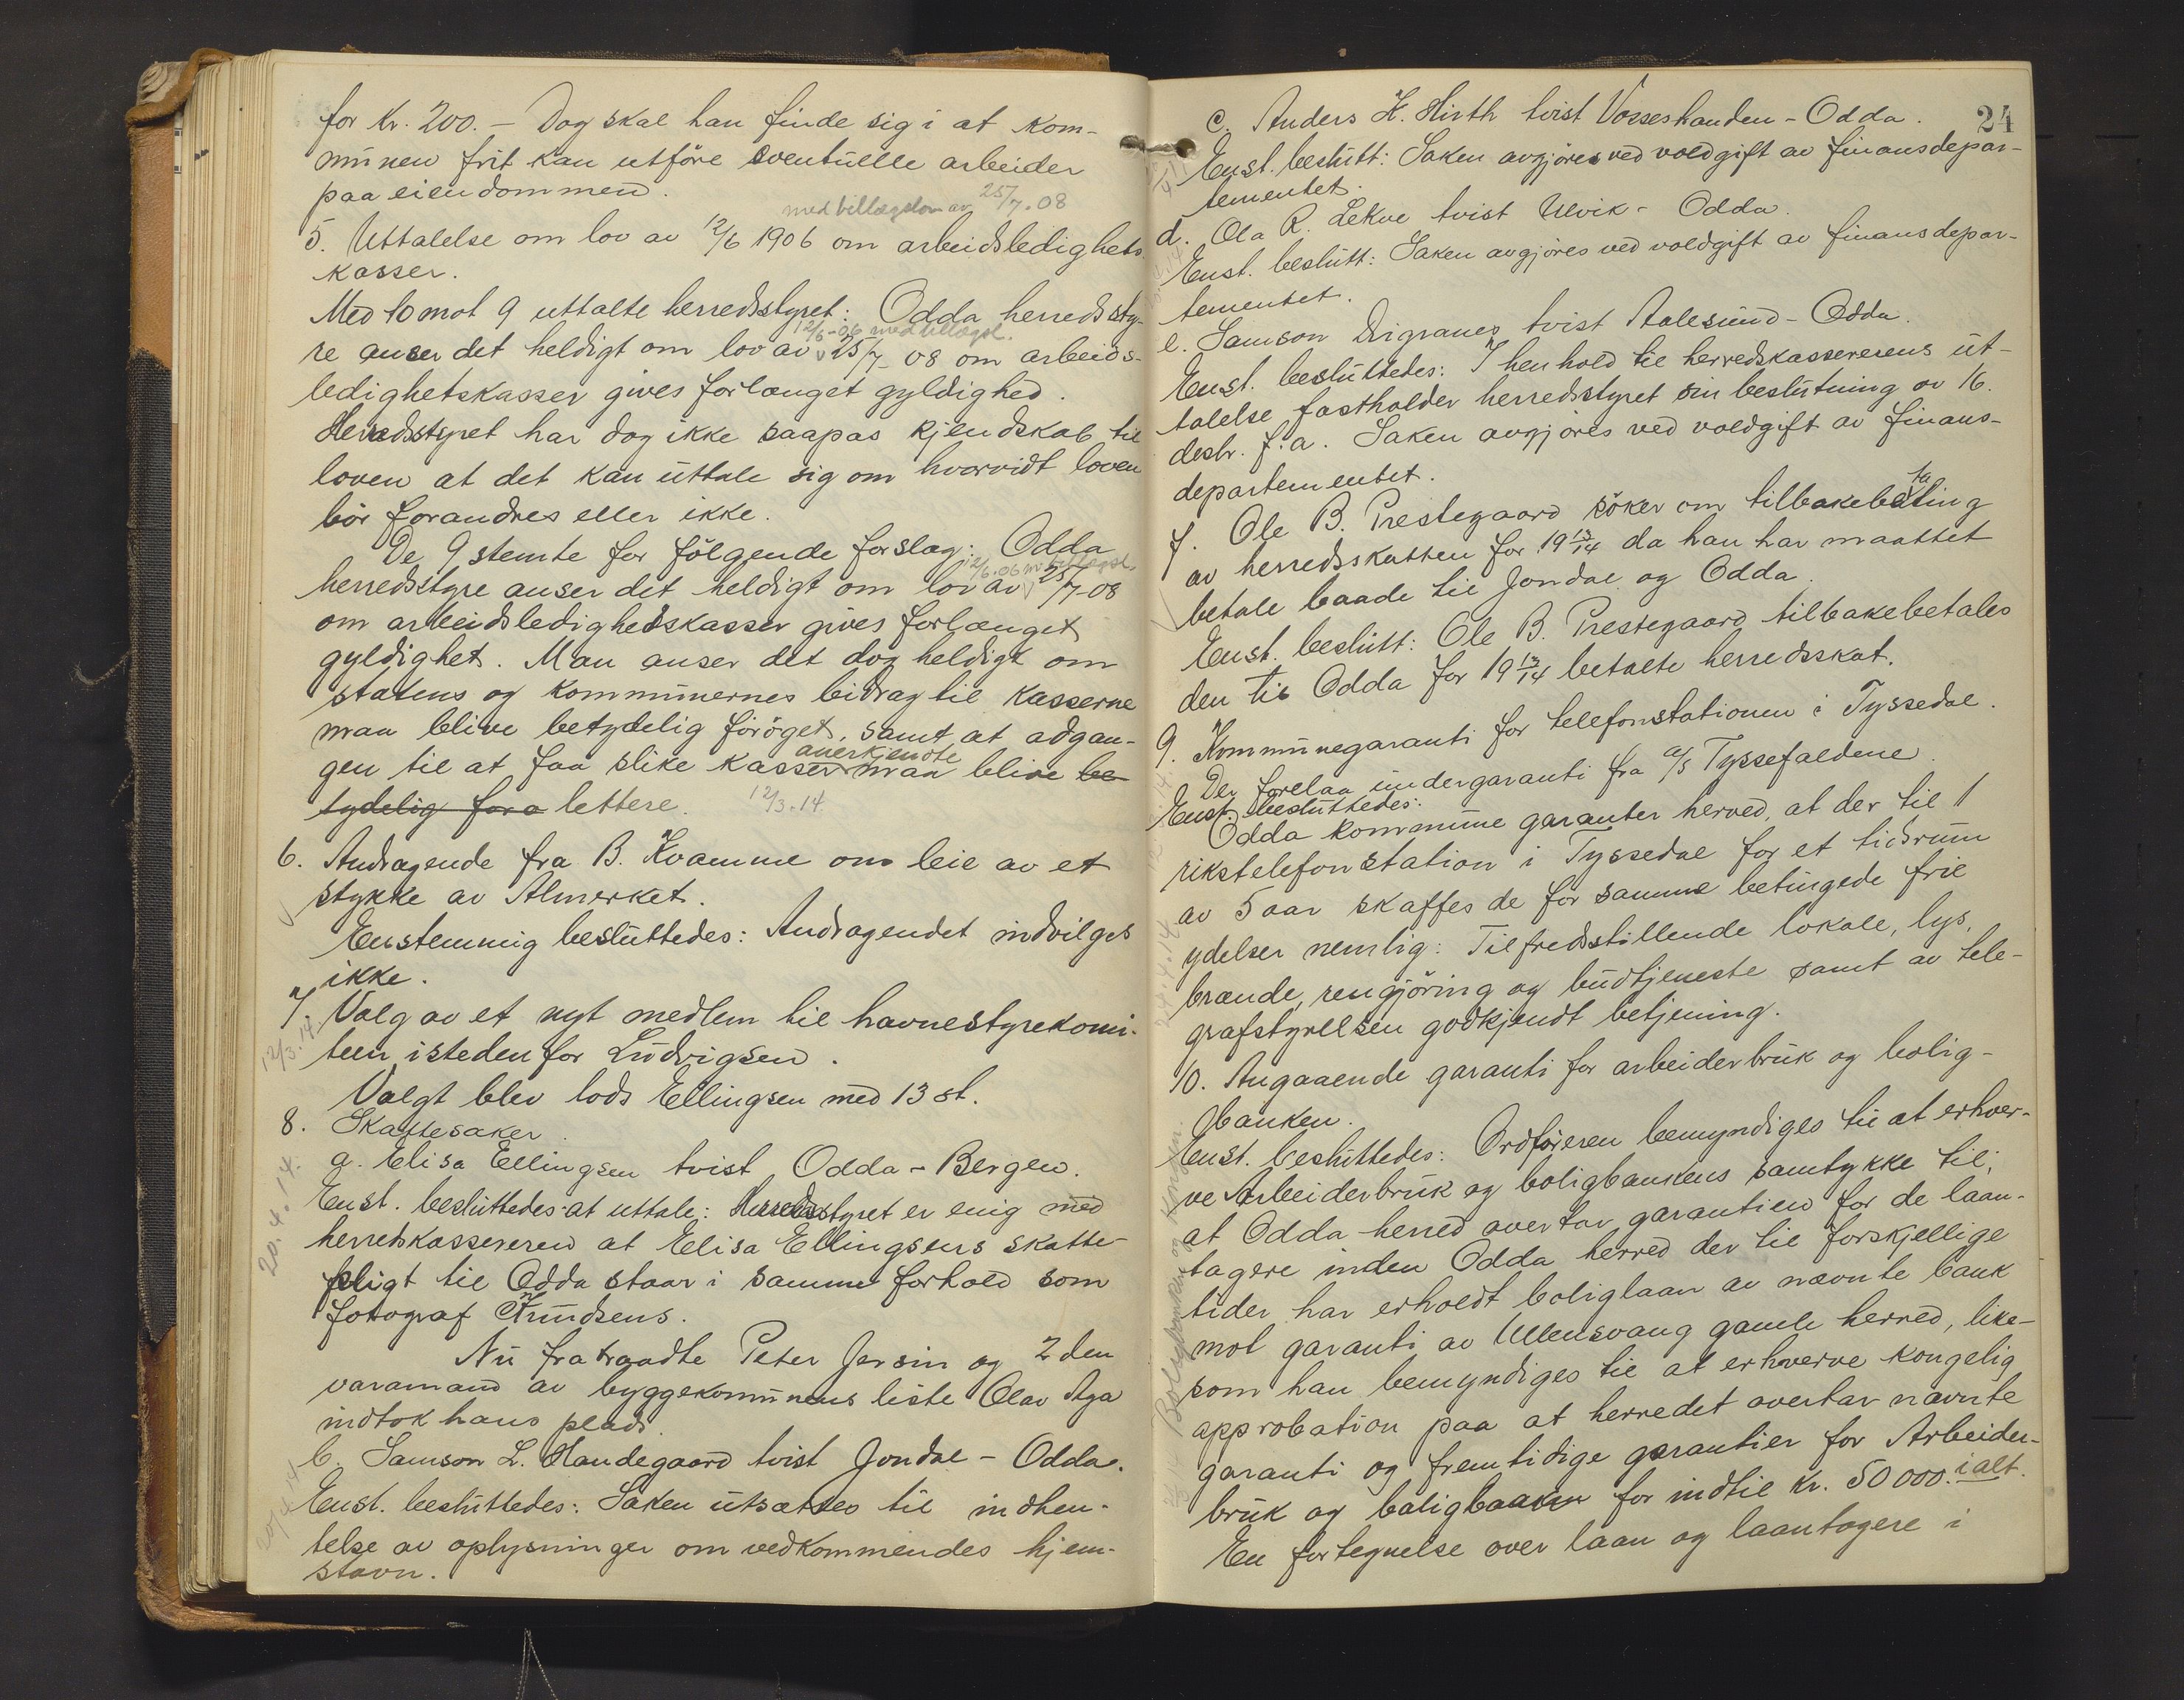 for Kr. 200. – Dog skal han finde sig i at kom-
munen frit kan utföre eventuelle arbeider
paa eiendommen.
med tillægslov av 25/7.08
5. Uttalelse om lov av 12/6 1906 om arbeidsledighets
kasser.
Med 10 mot 9 uttalte herredsstyret: Odda herredssty-
12/6-06 med tillægsl.
re anser det heldigt om lov av 25/7-08 om arbeids-
ledighetskasser gives forlænget gyldighed.
Herredsstyret har dog ikke saapas kjendskab til
loven at det kan uttale sig om hvorvidt loven
bör forandres eller ikke.
De 9 stemte for fölgende forslag: Odda
12/6.06 m tillægsl.
herredsstyre anser det heldigt om lov av 25/7-08
om arbeidsledighedskasser gives forlænget
gyldighet. Man anser det dog heldigt om
statens og kommunernes bidrag til kasserne
maa blive betydelig föröget, samt at adgan-
anerkjendte
gen til at faa slike kasser maa blive be-
tydelig fora lettere. 12/3.14.
6. Andragende fra B. Kvamme om leie av et
stykke av Almerket.
Enstemmig besluttedes: Andragendet indvilges
ikke.
7. Valg av et nyt medlem til havnestyrekomi-
12/3.14.
teen istedenfor Ludvigsen.
Valgt blev lods Ellingsen med 13 st.
8. Skattesaker.
a. Elisa Ellingsen tvist Odda – Bergen.
20.4.14.
Enst. besluttedes at uttale: Herredsstyret er enig med
herredskassereren at Elisa Ellingsens skatte-
pligt til Odda staar i samme forhold som
fotograf Knudsens.
Nu fratraadte Peter Jersin og 2den
varamand av byggekomunens liste Olav Aga
indtok hans plads.
b. Samson L. Handegaard tvist Jondal – Odda.
20/4 14
Enst. besluttedes: Saken utsættes til indhen-
telse av oplysninger om vedkommendes hjem-
stavn.
24
c. Anders K. Hirth tvist Vossestranden – Odda.
Enst. beslutt: Saken avgjöres ved voldgift av finansdepar-
tementet.
d. Ola R. Lekve tvist Ulvik – Odda.
Enst. beslutt: Saken avgjöres ved voldgift av finansdepar-
tementet.
e. Samson Digranes tvist Aalesund – Odda.
Enst. besluttedes: I henhold til herredskassererens ut-
talelse fastholder herredsstyret sin beslutning av 16.
desbr. f.a. Saken avgjöres ved voldgift av finans-
departementet.
ta
f. Ole B. Prestegaard söker om tilbakebeling
av herredsskatten for 19 13/14 da han har maattet
betale baade til Jondal og Odda.
Enst. beslutt: Ole B. Prestegaard tilbakebetales
den til Odda for 19 13/14 betalte herredsskat.
9. Kommunegaranti for telefonstationen i Tyssedal.
Der forelaa undergaranti fra A/S Tyssefaldene.
Enst. besluttedes:
Odda kommune garanter herved, at der til 1
rikstelefonstation i Tyssedal for et tidsrum
av 5 aar skaffes de for samme betingede frie
24.4.14
ydelser nemlig: Tilfredsstillende lokale, lys,
brænde, rengjöring og budtjeneste samt av tele-
grafstyrelsen godkjendt betjening.
10. Angaaende garanti for arbeiderbruk og bolig-
banken.
Enst. besluttedes: Ordföreren bemyndiges til at erhver-
ve Arbeiderbruk og boligbankens samtykke til,
at Odda herred overtar garantien for de laan-
tagere inden Odda herred der til forskjellige
tider har erholdt boliglaan av nævnte bank
mot garanti av Ullensvang gamle herred, like-
som han bemyndiges til at erhverve kongelig
approbation paa at herredet overtar nævnte
garanti og fremtidige garantier for Arbeider-
bruk og boligbanken for indtil kr. 50 000. ialt.
En fortegnelse over laan og laantagere i